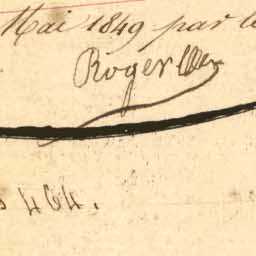 Mai 1849 par le
Roger
464.